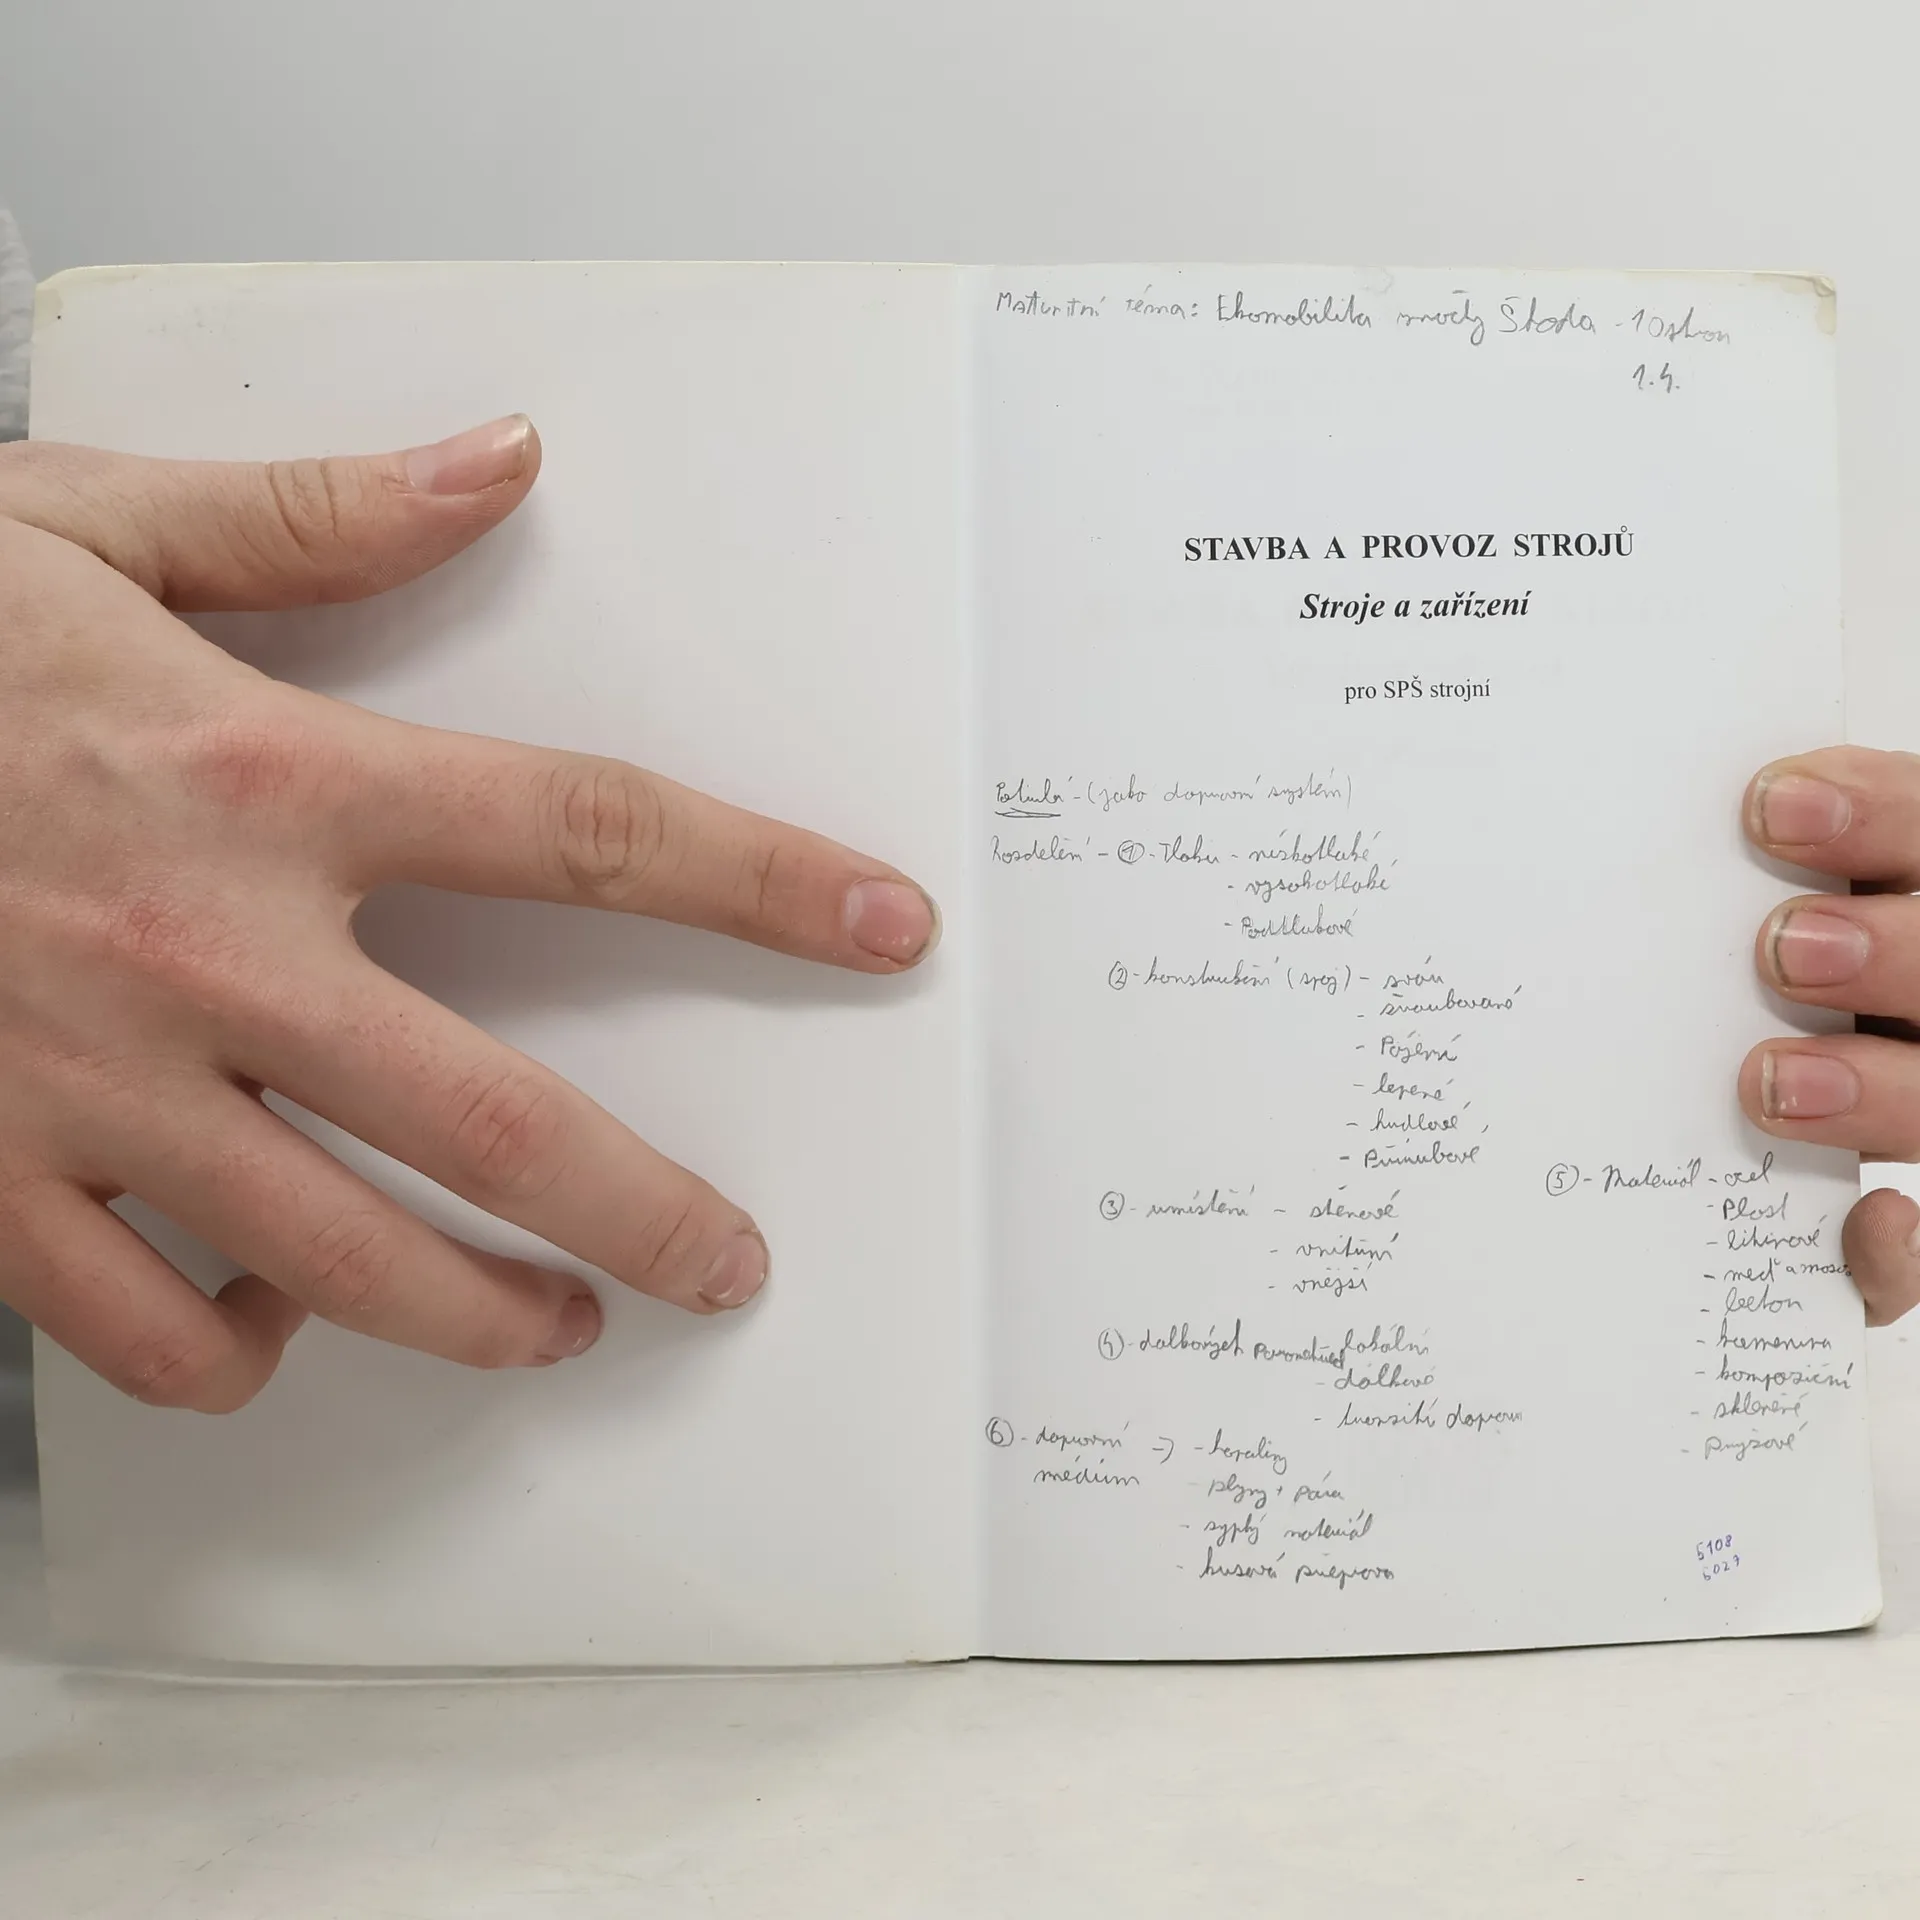 Maturitní téma: Ekomobilita Škoda - 10stran
1.4.
STAVBA A PROVOZ STROJŮ
Stroje a zařízení
pro SPŠ strojní
Potrubí - (jako dopravní systém)
Rozdělení - ① - Tlaku - nízkotlaké
- vysokotlaké
- Podtlakové
② - konstrukční (spoj) - svár
- šroubované
- Pájení
- lepené
- hrdlové
- Přírubové
③ - umístění - stěnové
- vnitřní
- vnější
④ - dálkových Parametrů - lokální
- dálkové
- tranzití doprava
⑤ - Materiál - ocel
- Plast
- litinové
- měď a mosaz
- beton
- kamenina
- kompoziční
- skleněné
- pryžové
⑥ - dopravní médium -> - kapaliny
- plyny + Pára
- sypký materiál
- kusová přeprava
5108
6027